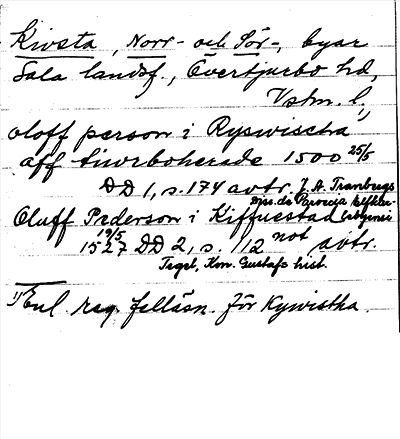 Kivsta, Norr- och Sör-, byar
Sala landsf., Övertjurbo hd,
Vstm. l.,
oloff person i Ryswischa
aff tiwrboherade 1500 25/5
DD 1, s. 174 avtr. J. A. Tranbergs
Djss. de Paroecia
Oluff Pederson i Kiffuestad
19/5
1527 DD 2, s. 112 not avtr.
Tegel, Kon. Gustafs hist.
1) Enl. reg. felläsn. för Kywistha.